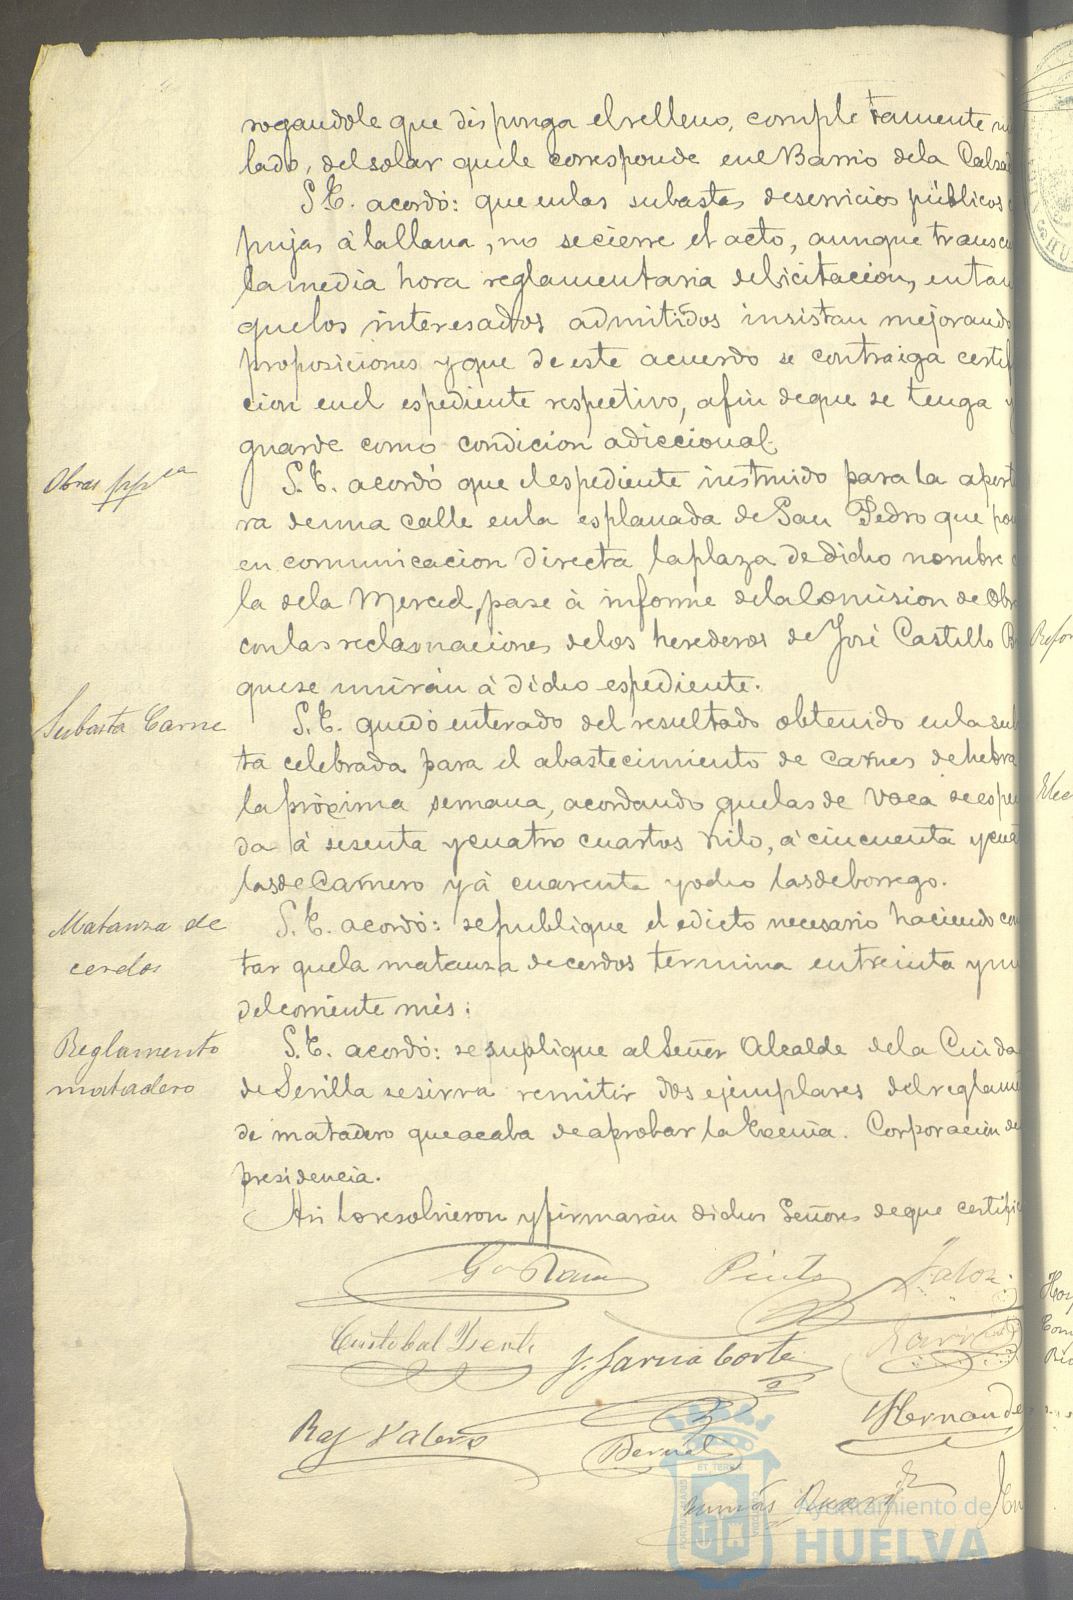 rogandole que disponga el relleno, completamente
lado, del solar que le corresponde en el Barrio de la Calza
S.E. acordó: que en las subastas de servicios públicos
pujas á la llana, no se cierre el acto, aunque transcu
la media hora reglamentaria de licitacion, en tan
que los interesados admitidos insistan mejorando
proposiciones y que de este acuerdo se contraiga certifi
cion en el espediente respectivo, afin de que se tenga y
guarde como condicion adiccional.
Obras
S.E. acordó que el espediente instruido para la apert
ra de una calle en la esplanada de San Pedro que pon
en comunicacion directa la plaza de dicho nombre
la de la Merced, pase á informe de la Comision de Obr
con las reclamaciones de los herederos de José Castillo
que se unirán á dicho espediente.
Subasta Carne
S.E. quedó enterado del resultado obtenido en la sub
ta celebrada para el abastecimiento de carnes de hebra
la próxima semana, acordando que las de vaca se espen
da á sesenta y cuatro cuartos kilo, á cincuenta y cuat
las de Carnero y á cuarenta y ocho las de borrego.
Matanza de
cerdos
S.E. acordó: se publique el edicto necesario haciendo con
tar que la matanza de cerdos termina en treinta y un
del corriente mes.
Reglamento
matadero
S.E. acordó: se suplique al Señor Alcalde de la Ciuda
de Sevilla se sirva remitir dos ejemplares del reglame
de matadero que acaba de aprobar la Excma. Corporacion de
presidencia.
Asi lo resolvieron y firmarán dichos Señores de que certific
Pinto
Cristobal
J. Garcia Corte
Raf Valero
Bernal
Hernande
Tomás
Ayuntamiento de
HUELVA